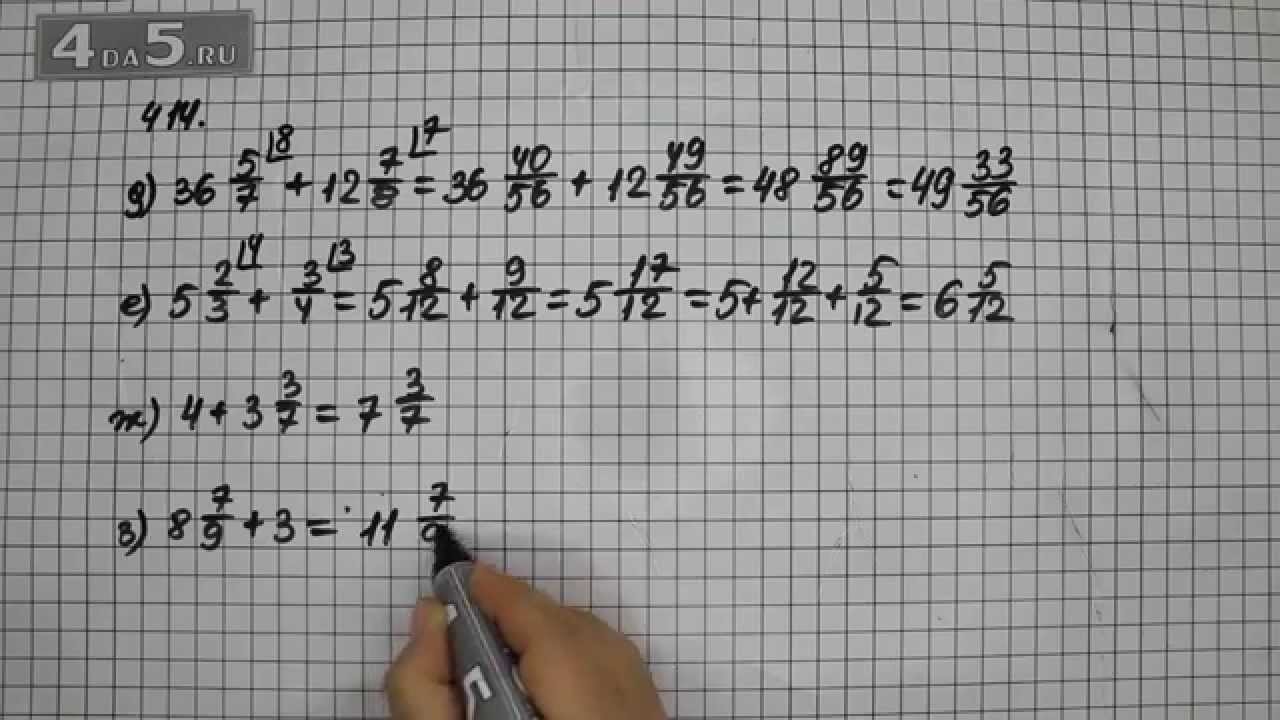 4DA5.RU
414.
д) 36 5/7 ⌊8 + 12 7/8 ⌊7 = 36 40/56 + 12 49/56 = 48 89/56 = 49 33/56
е) 5 2/3 ⌊4 + 3/4 ⌊3 = 5 8/12 + 9/12 = 5 17/12 = 5 + 12/12 + 5/12 = 6 5/12
ж) 4 + 3 3/7 = 7 3/7
з) 8 7/9 + 3 = 11 7/9